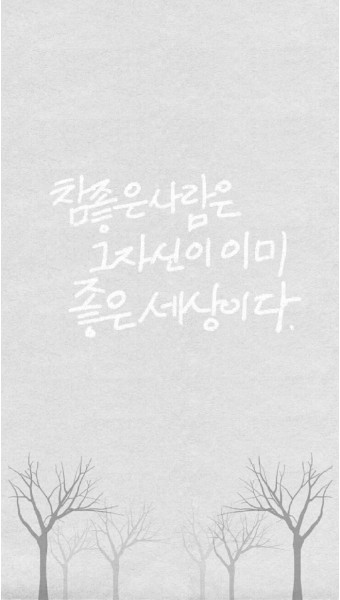 참좋은사람은
그자신이 이미
좋은 세상이다.